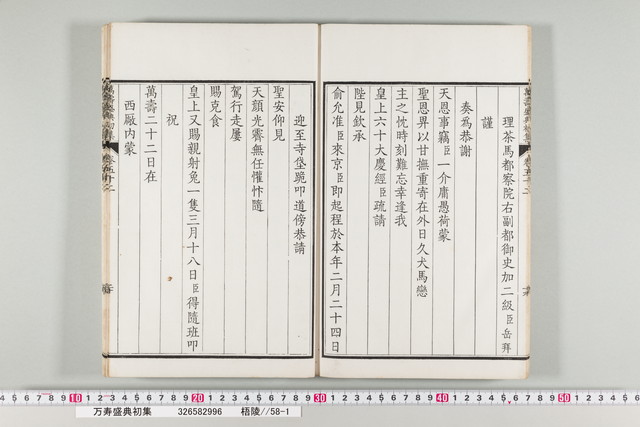 理茶馬都察院右副都御史加二級臣岳拜
謹
奏為恭謝
天恩事竊臣一介庸愚荷蒙
聖恩畀以甘撫重寄在外日久犬馬戀
主之忱時刻難忘幸逢我
皇上六十大慶經臣疏請
陛見欽承
俞允准臣來京臣即起程於本年二月二十四日
迎至寺垡跪叩道傍恭請
聖安仰見
天顏光霽無任懽忭隨
駕行走屢
賜克食
皇上又賜親射兔一隻三月十八日臣得隨班叩
祝
萬壽二十二日在
西厰内蒙
10
20
30
40
50
万寿盛典初集 326582996 梧陵//58-1